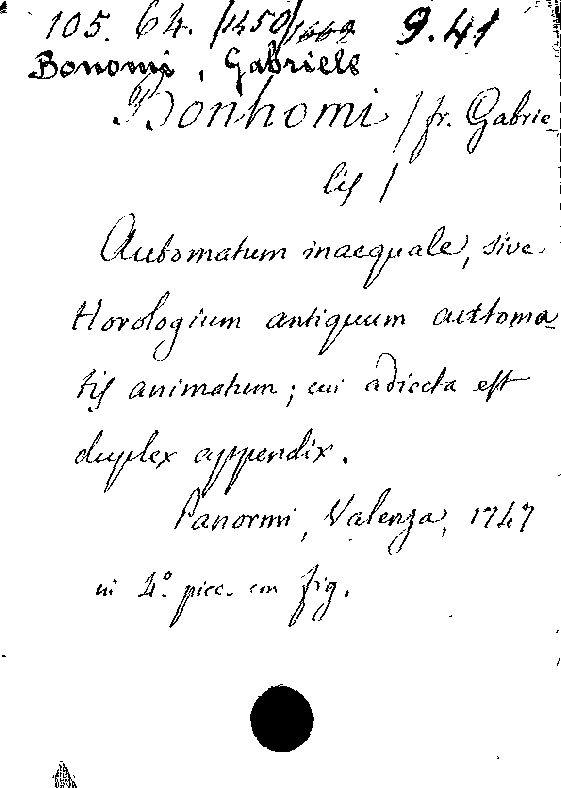 105. 64. /1450/1662 9.41
Bonomi, Gabriele
Bonhomi / fr. Gabrie_
lis /
Automatum inaequale, sive
Horologium antiquum automa_
tis animatum; cui adiecta est
duplex appendix.
Panormi, Valenza, 1747
in 4.º picc. con fig.